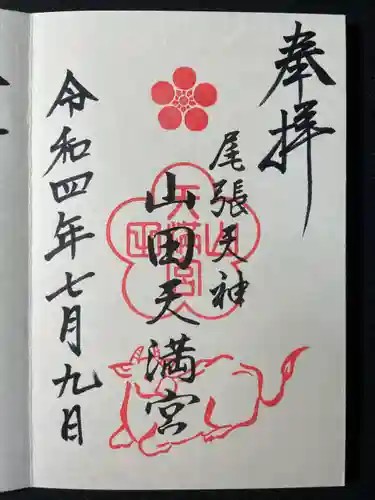 奉拝
尾張天神
山田天満宮
令和四年七月九日